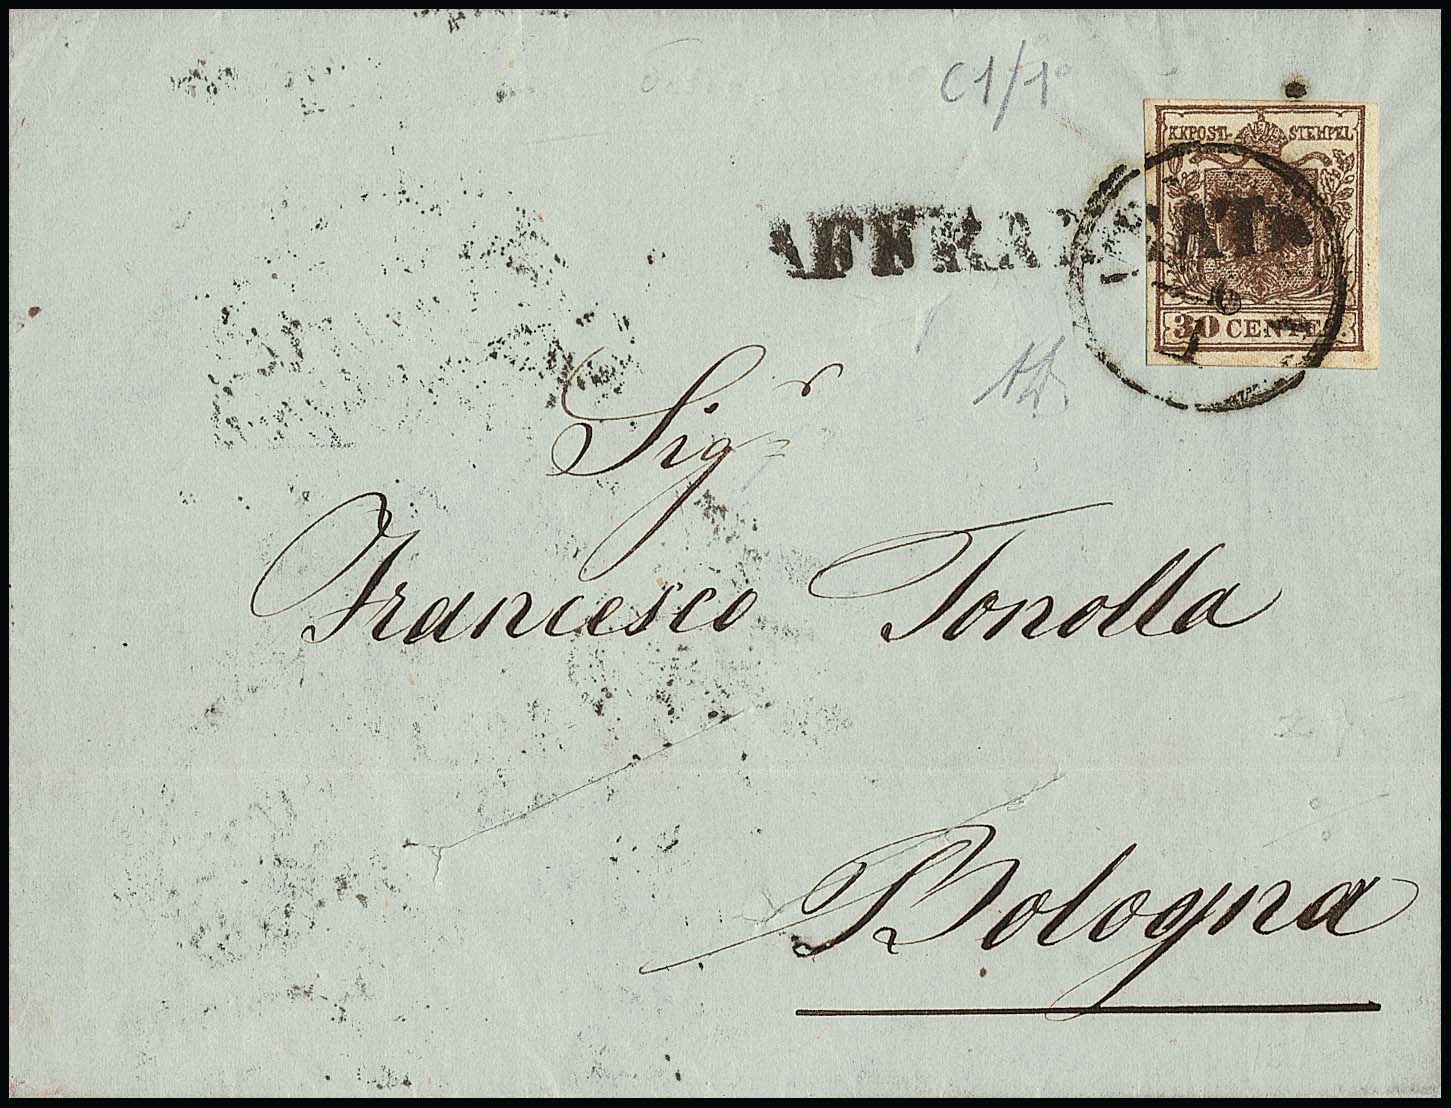 C1/1°
KKPOST- STEMPEL
AFFRANCATA
30 CENTES.
Sig.r
Francesco Tonolla
Bologna